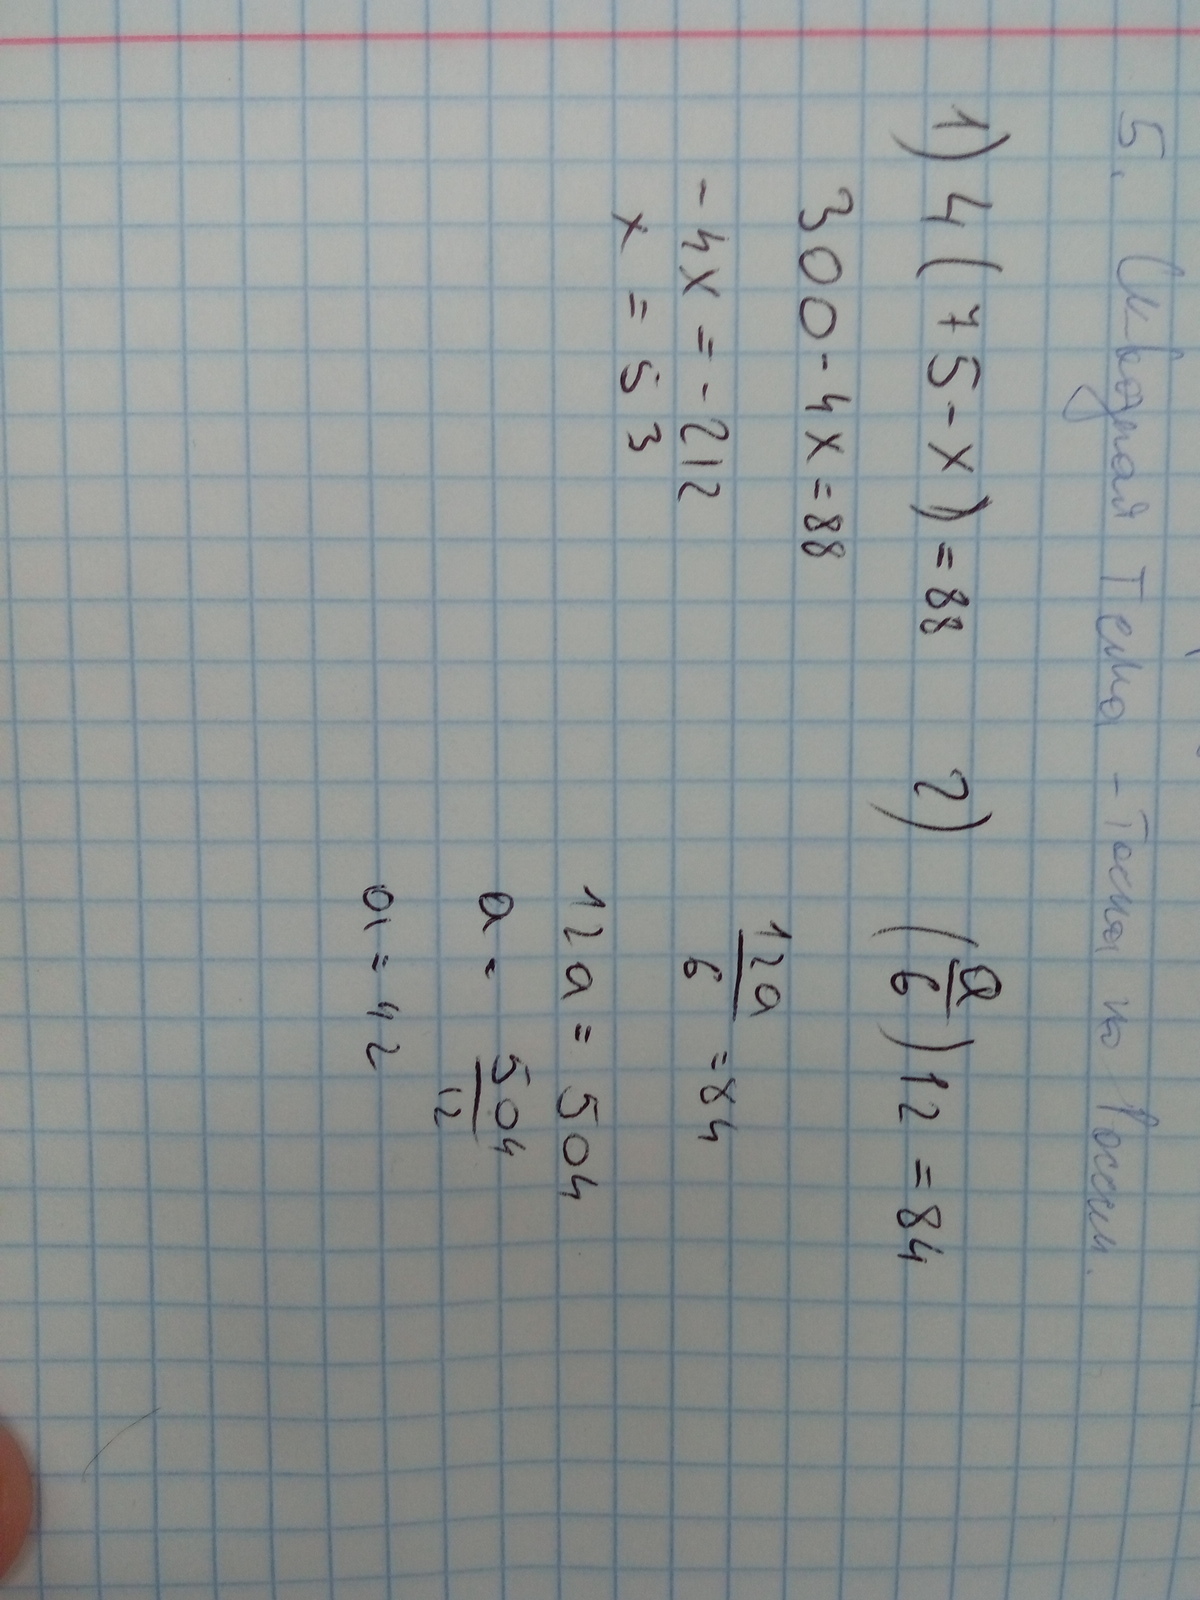 5. Сквозная тема - Тоска по России.
1) 4(75-x)=88
300-4x=88
-4x=-212
x=53
2) (a/6)12=84
12a/6=84
12a=504
a=504/12
a=42